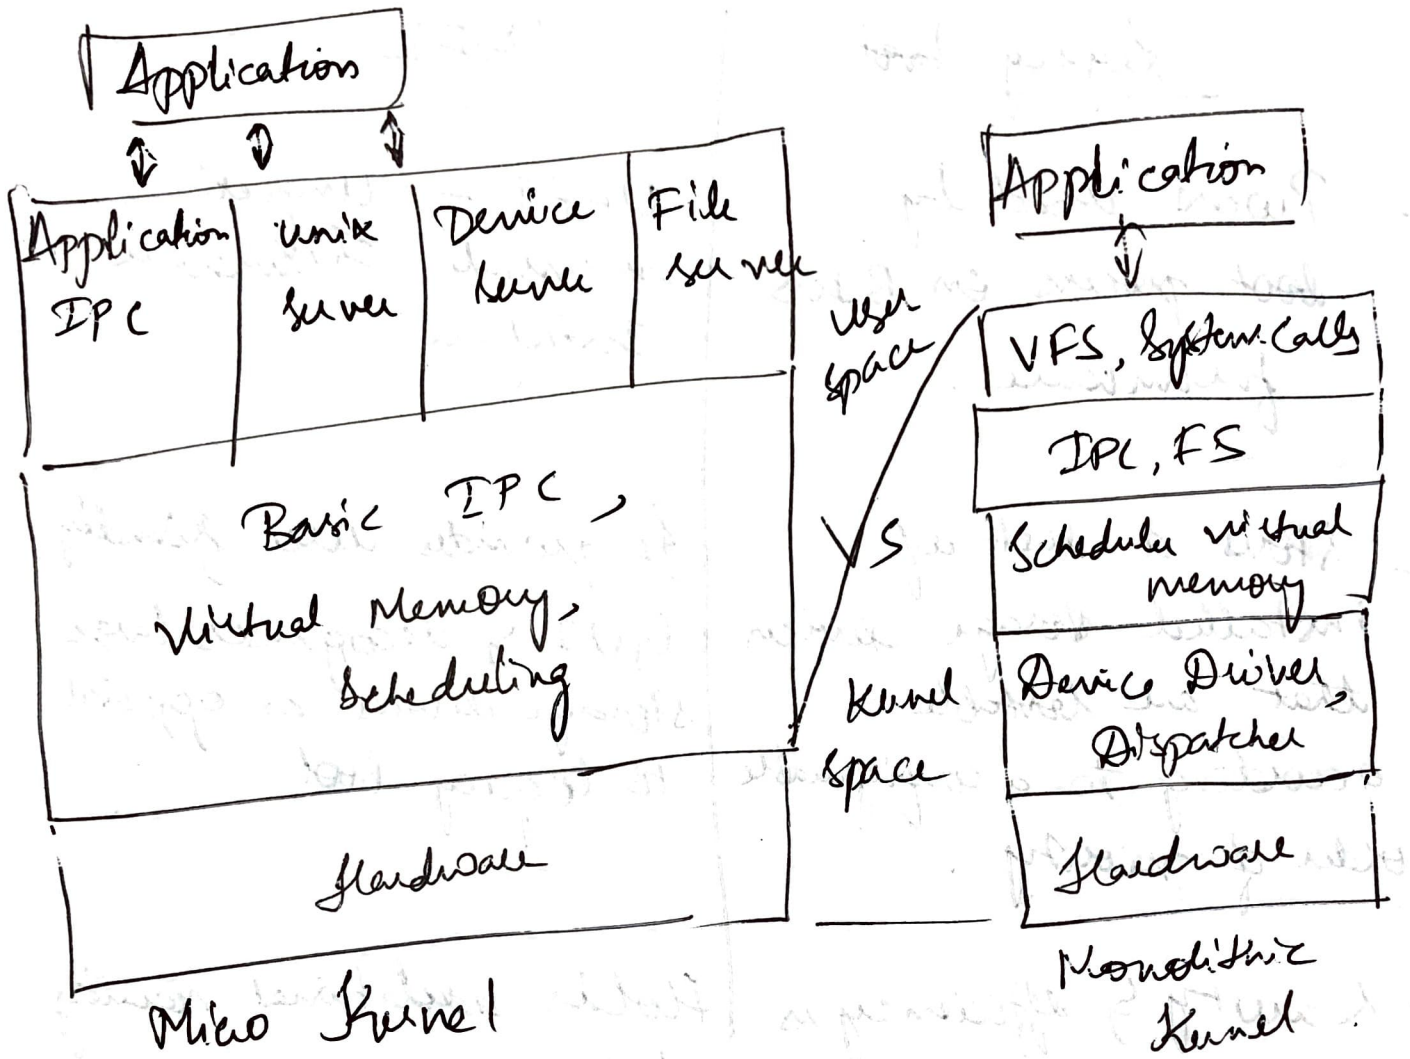 Application
Application
IPC
unix
server
Device
server
File
server
Basic IPC,
Virtual Memory,
Scheduling
Hardware
Micro Kernel
User
space
VS
Kernel
space
Application
VFS, System calls
IPC, FS
Scheduler virtual
memory
Device Driver,
Dispatcher
Hardware
Monolithic
Kernel